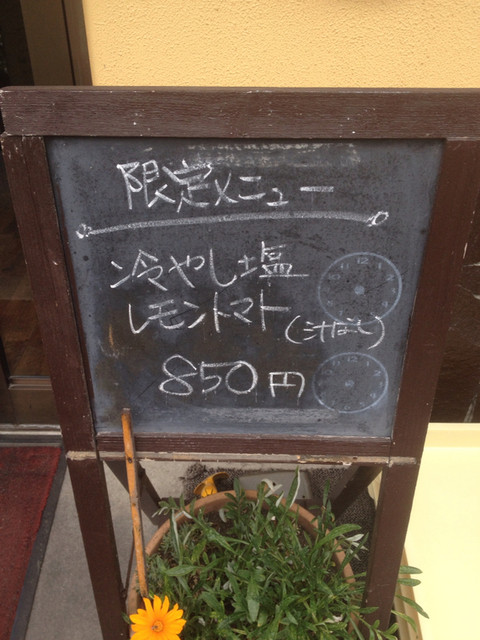 限定メニュー
冷やし塩
レモントマト
(汁なし)
850円